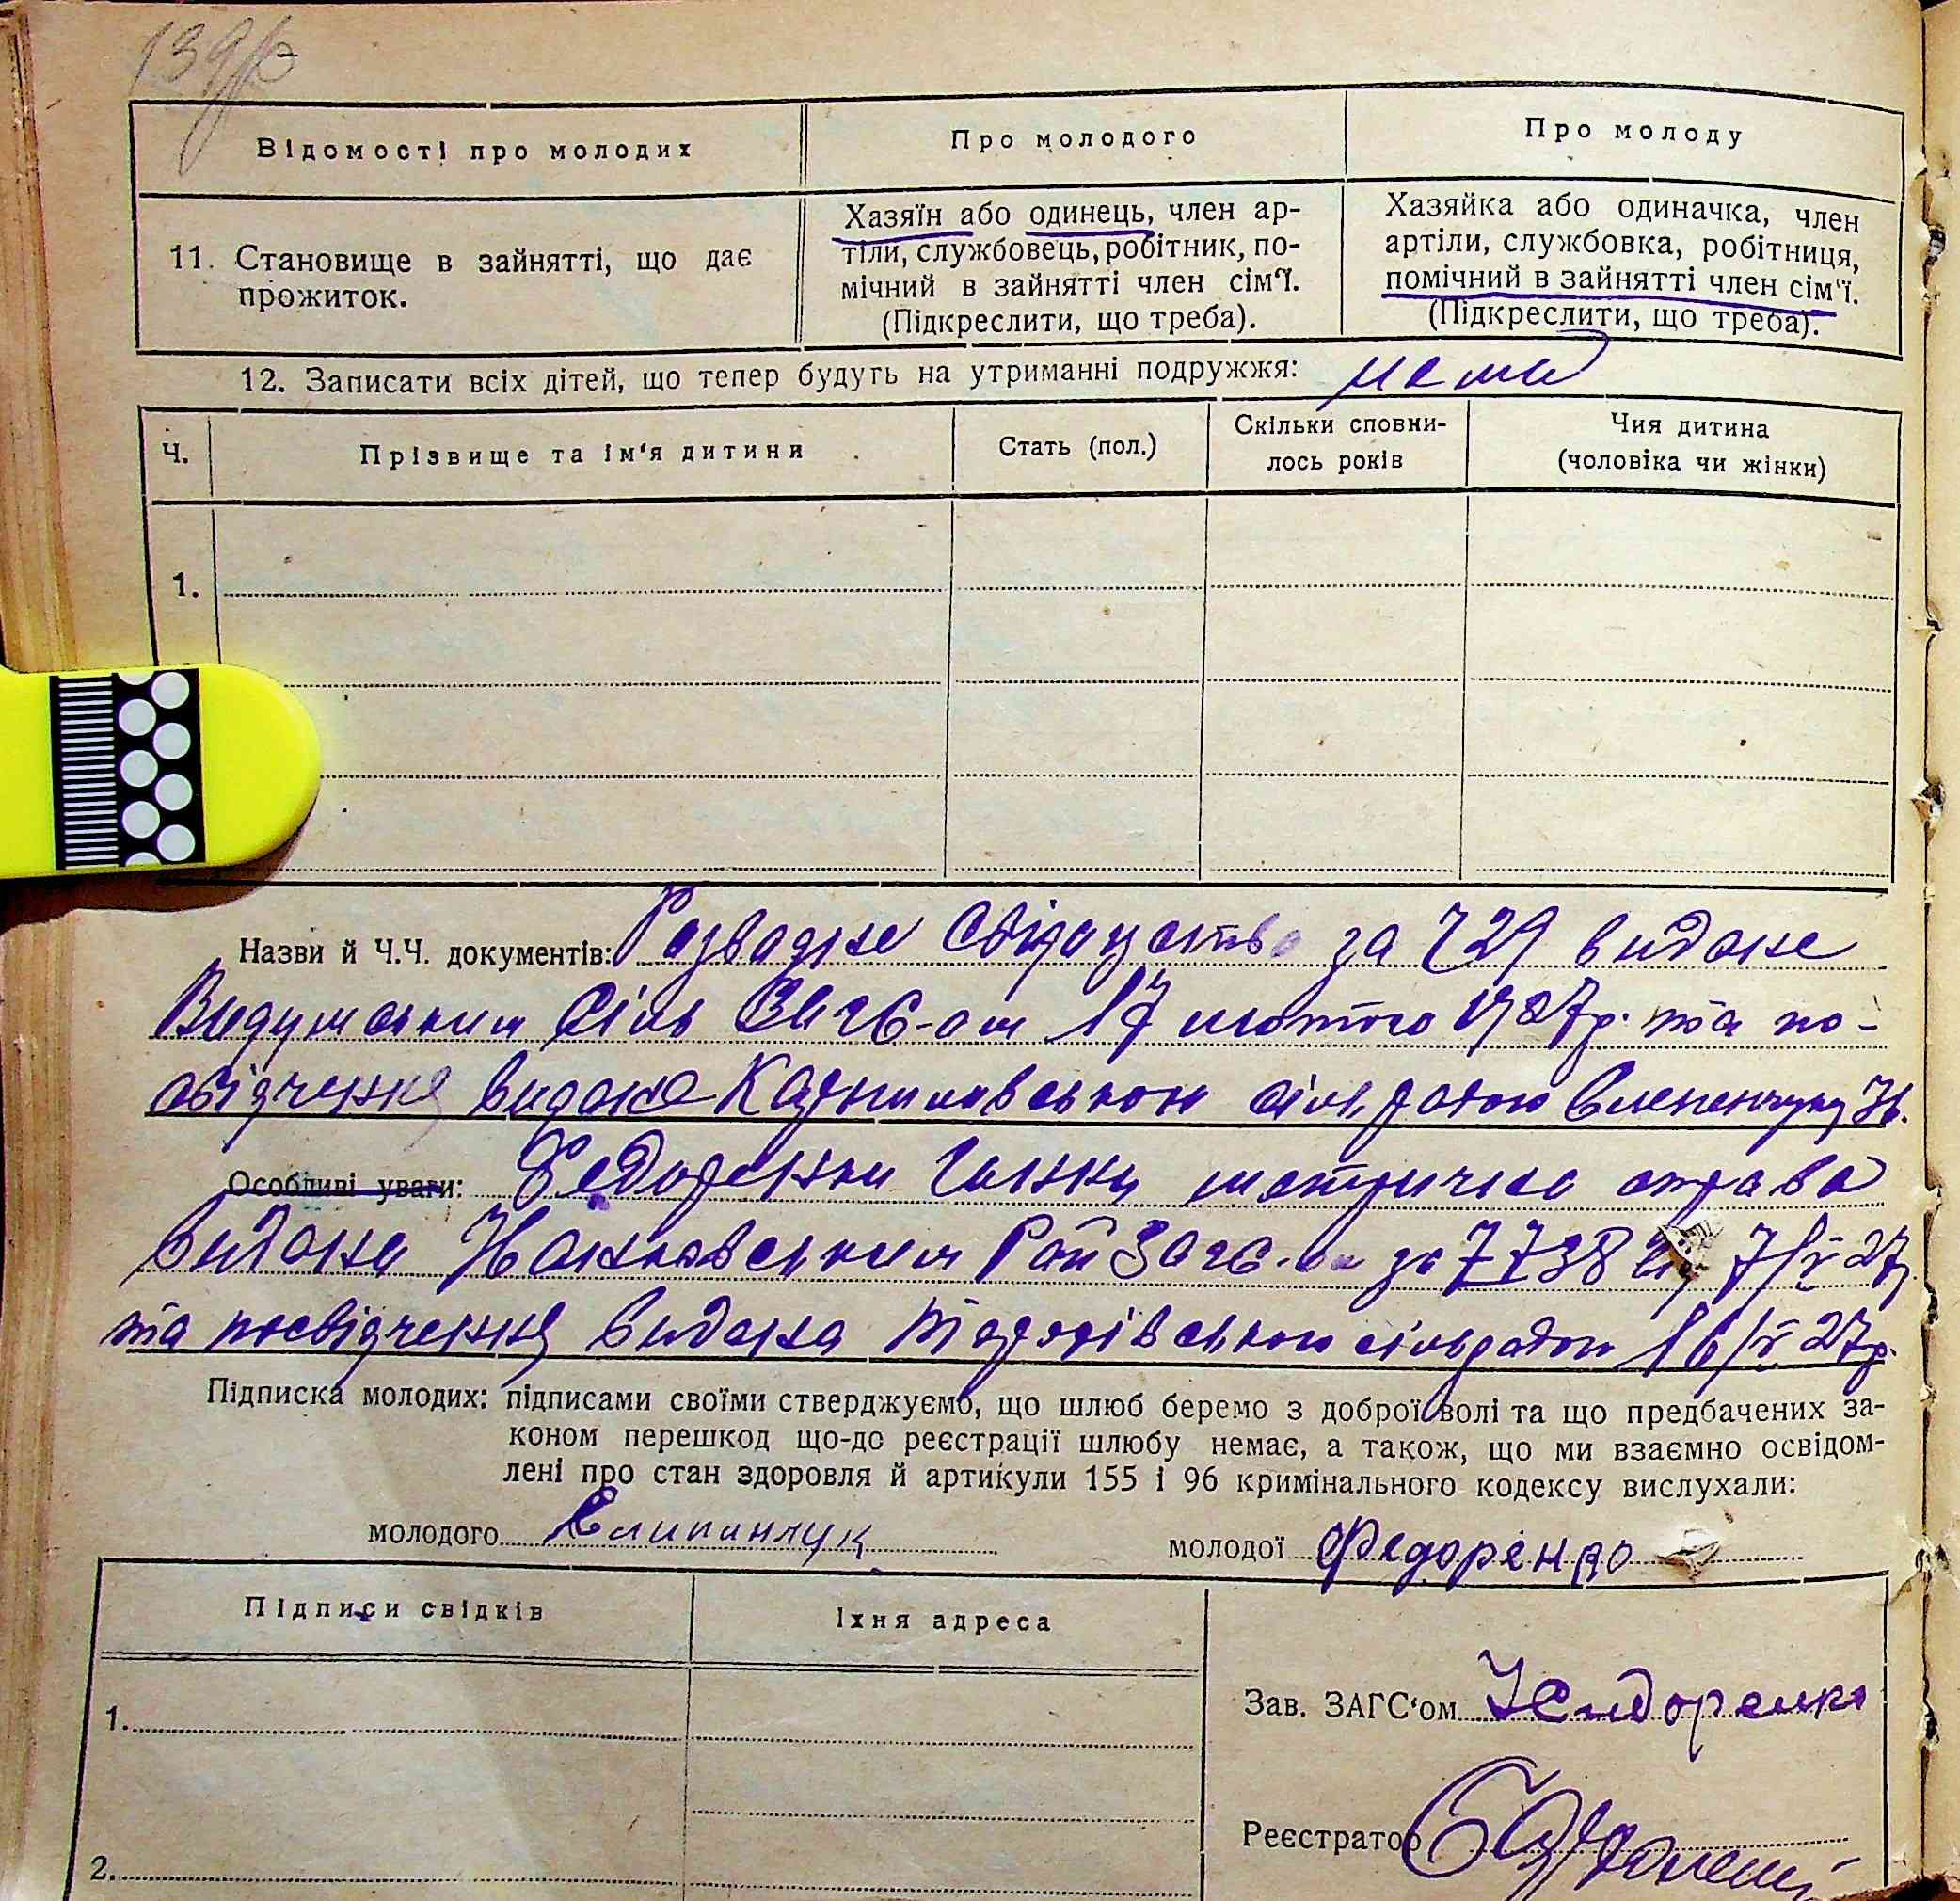 139
Відомості про молодих
Про молодого
Про молоду
11. Становище в зайнятті, що дає
прожиток.
Хазяїн або одинець, член ар-
тіли, службовець, робітник, по-
мічний в зайнятті член сім'ї.
(Підкреслити, що треба).
Хазяйка або одиначка, член
артіли, службовка, робітниця,
помічний в зайнятті член сім'ї.
(Підкреслити, що треба).
12. Записати всіх дітей, що тепер будуть на утриманні подружжя:
Ч.
Прізвище та ім'я дитини
Стать (пол.)
Скільки сповни-
лось років
Чия дитина
(чоловіка чи жінки)
1.
Назви й Ч.Ч. документів: за Ч 29 видане
17 лютого 1927р. та по-
свідчення видане сільрадою
Особливі уваги: Федоренки Ганни метрична справа
видана Рай Загс-ом за 7738 27
та посвідчення видана сільрадою 16/V 27р.
Підписка молодих: підписами своїми стверджуємо, що шлюб беремо з доброї волі та що предбачених за-
коном перешкод що-до реєстрації шлюбу немає, а також, що ми взаємно освідом-
лені про стан здоровля й артикули 155 і 96 кримінального кодексу вислухали:
молодого
молодої Федоренко
Підписи свідків
Їхня адреса
1.
Зав. ЗАГС'ом
Реєстратор
2.